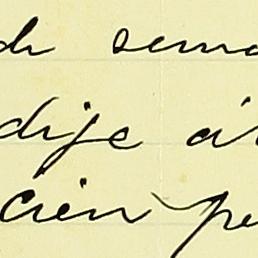 de sema
dije á
cien pe